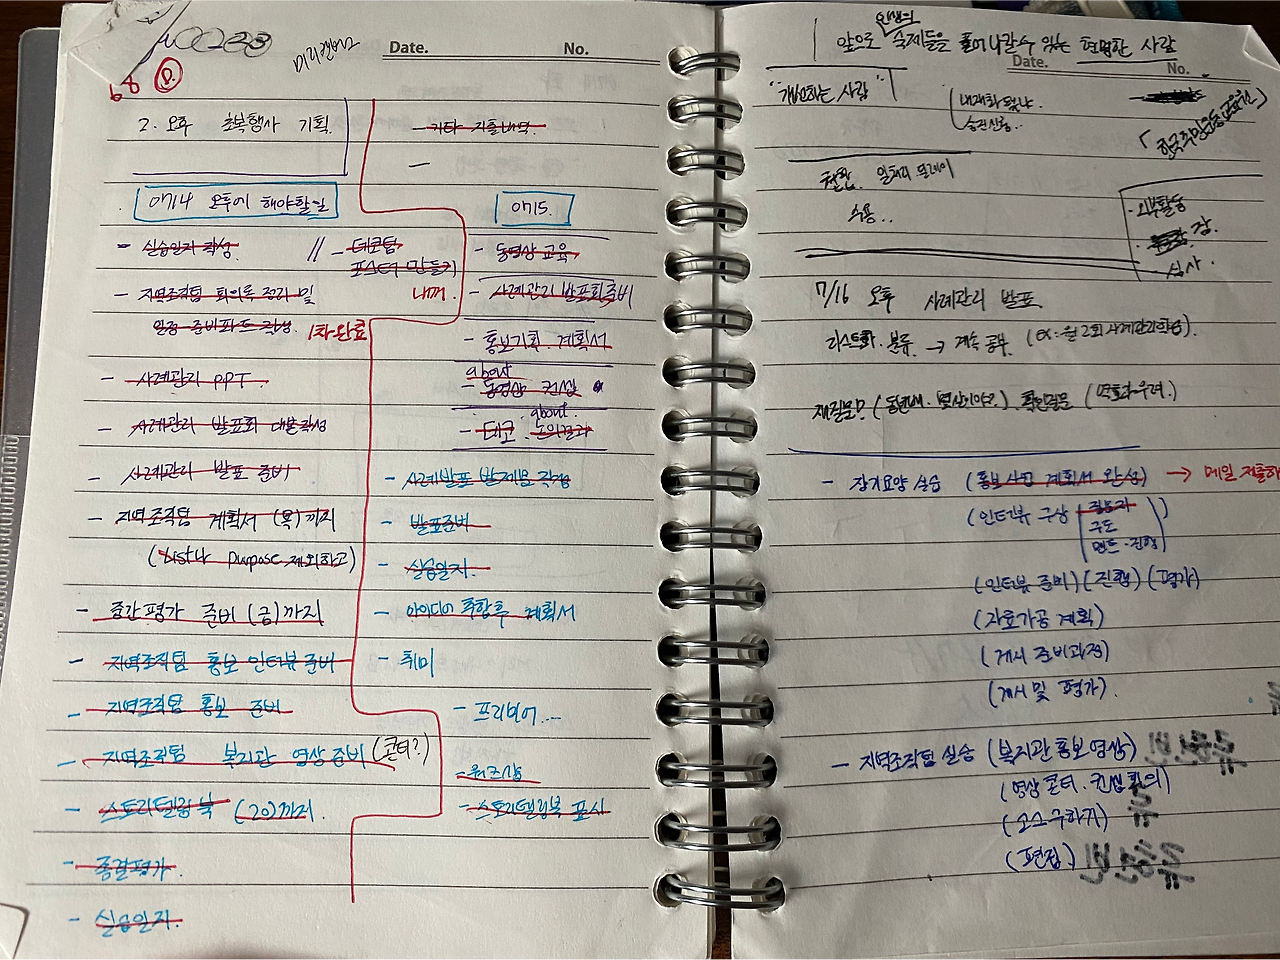 68 P.
Date. No.
2. 오후 초복행사 기획.
0714 오후에 해야할일
- 실습일지 작성.
// - 데코팀
포스터 만들기
- 지역조직팀 회의록 정리 및
내꺼.
일정 준비파트 작성. 1차완료
- 사례관리 PPT.
- 사례관리 발표회 대본작성
- 사례관리 발표 준비
- 지역조직팀 계획서 (목)까지
(list나 purpose 제외하고)
- 중간평가 준비 (금)까지
- 지역조직팀 홍보 인터뷰 준비
- 지역조직팀 홍보 준비
- 지역조직팀 복지관 영상준비 (콘티?)
- 스토리텔링북 (20)까지.
- 종결평가.
- 실습일지.
- 기타 지출내역.
-
0715.
- 동영상 교육.
- 사례관리 발표회준비
- 홍보기획. 계획서
about
- 동영상 컨셉
about.
- 데코. 논의결과
- 사례발표 발제문 작성
- 발표준비
- 실습일지.
- 아이디어 취합후 계획서
- 취미
- 프리뷰어...
- 워크샵
- 스토리텔링북 표시
인생의
앞으로 숙제들을 풀어나갈수 있는 현명한 사람
Date. No.
"개선하는 사람"
수용..
외부활동
장.
심사.
7/16 오후 사례관리 발표
리스트화. 분류. → 계속 공부. (ex: 월2회 사례관리학습).
재질문? 확인질문 (역효과우려.)
- 장기요양 실습 (홍보사업 계획서 완성) → 메일 제출하
(인터뷰 구상 질문지
구도
멘트.진행)
(인터뷰 준비) (진행) (평가)
(자료가공 계획)
(게시 준비과정)
(게시 및 평가).
- 지역조직팀 실습 (복지관 홍보영상)
(영상 콘티. 컨셉 회의)
(소스 구하기)
(편집)